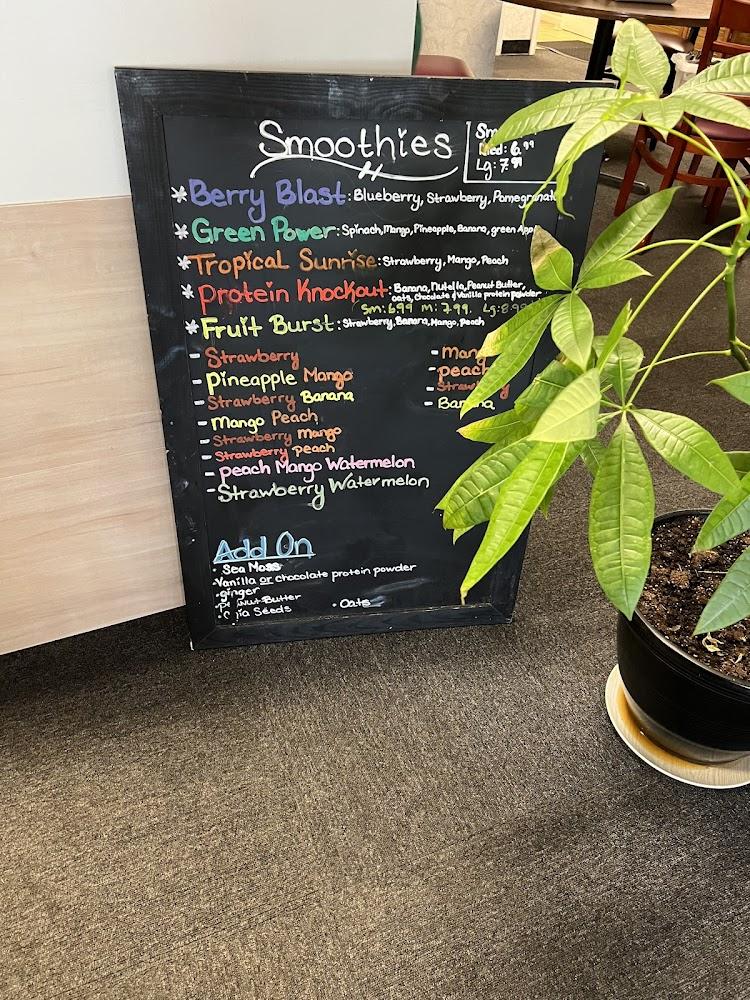 Smoothies
Sm
Med: 6.99
Lg: 7.99
* Berry Blast: Blueberry, Strawberry, Pomegranate
* Green Power: Spinach, Mango, Pineapple, Banana, green Appl
* Tropical Sunrise: Strawberry, Mango, Peach
* Protein Knockout: Banana, Nutella, Peanut Butter,
oats, chocolate & Vanilla protein powder
Sm: 6.99 m: 7.99. Lg: 8.99
* Fruit Burst: Strawberry, Banana, Mango, peach
- Strawberry
- Pineapple Mango
- Strawberry Banana
- Mango Peach
- Strawberry Mango
- Strawberry peach
- peach Mango Watermelon
- Strawberry Watermelon
- Mango
- peach
- Strawberry
- Banana
Add On
· Sea Moss
· Vanilla or chocolate protein powder
· ginger
· Peanut Butter
· Chia Seeds
· Oats